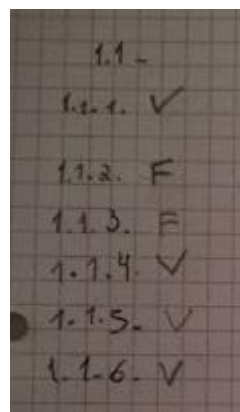 1.1-
1.1.1. V
1.1.2. F
1.1.3. F
1.1.4. V
1.1.5. V
1.1.6. V